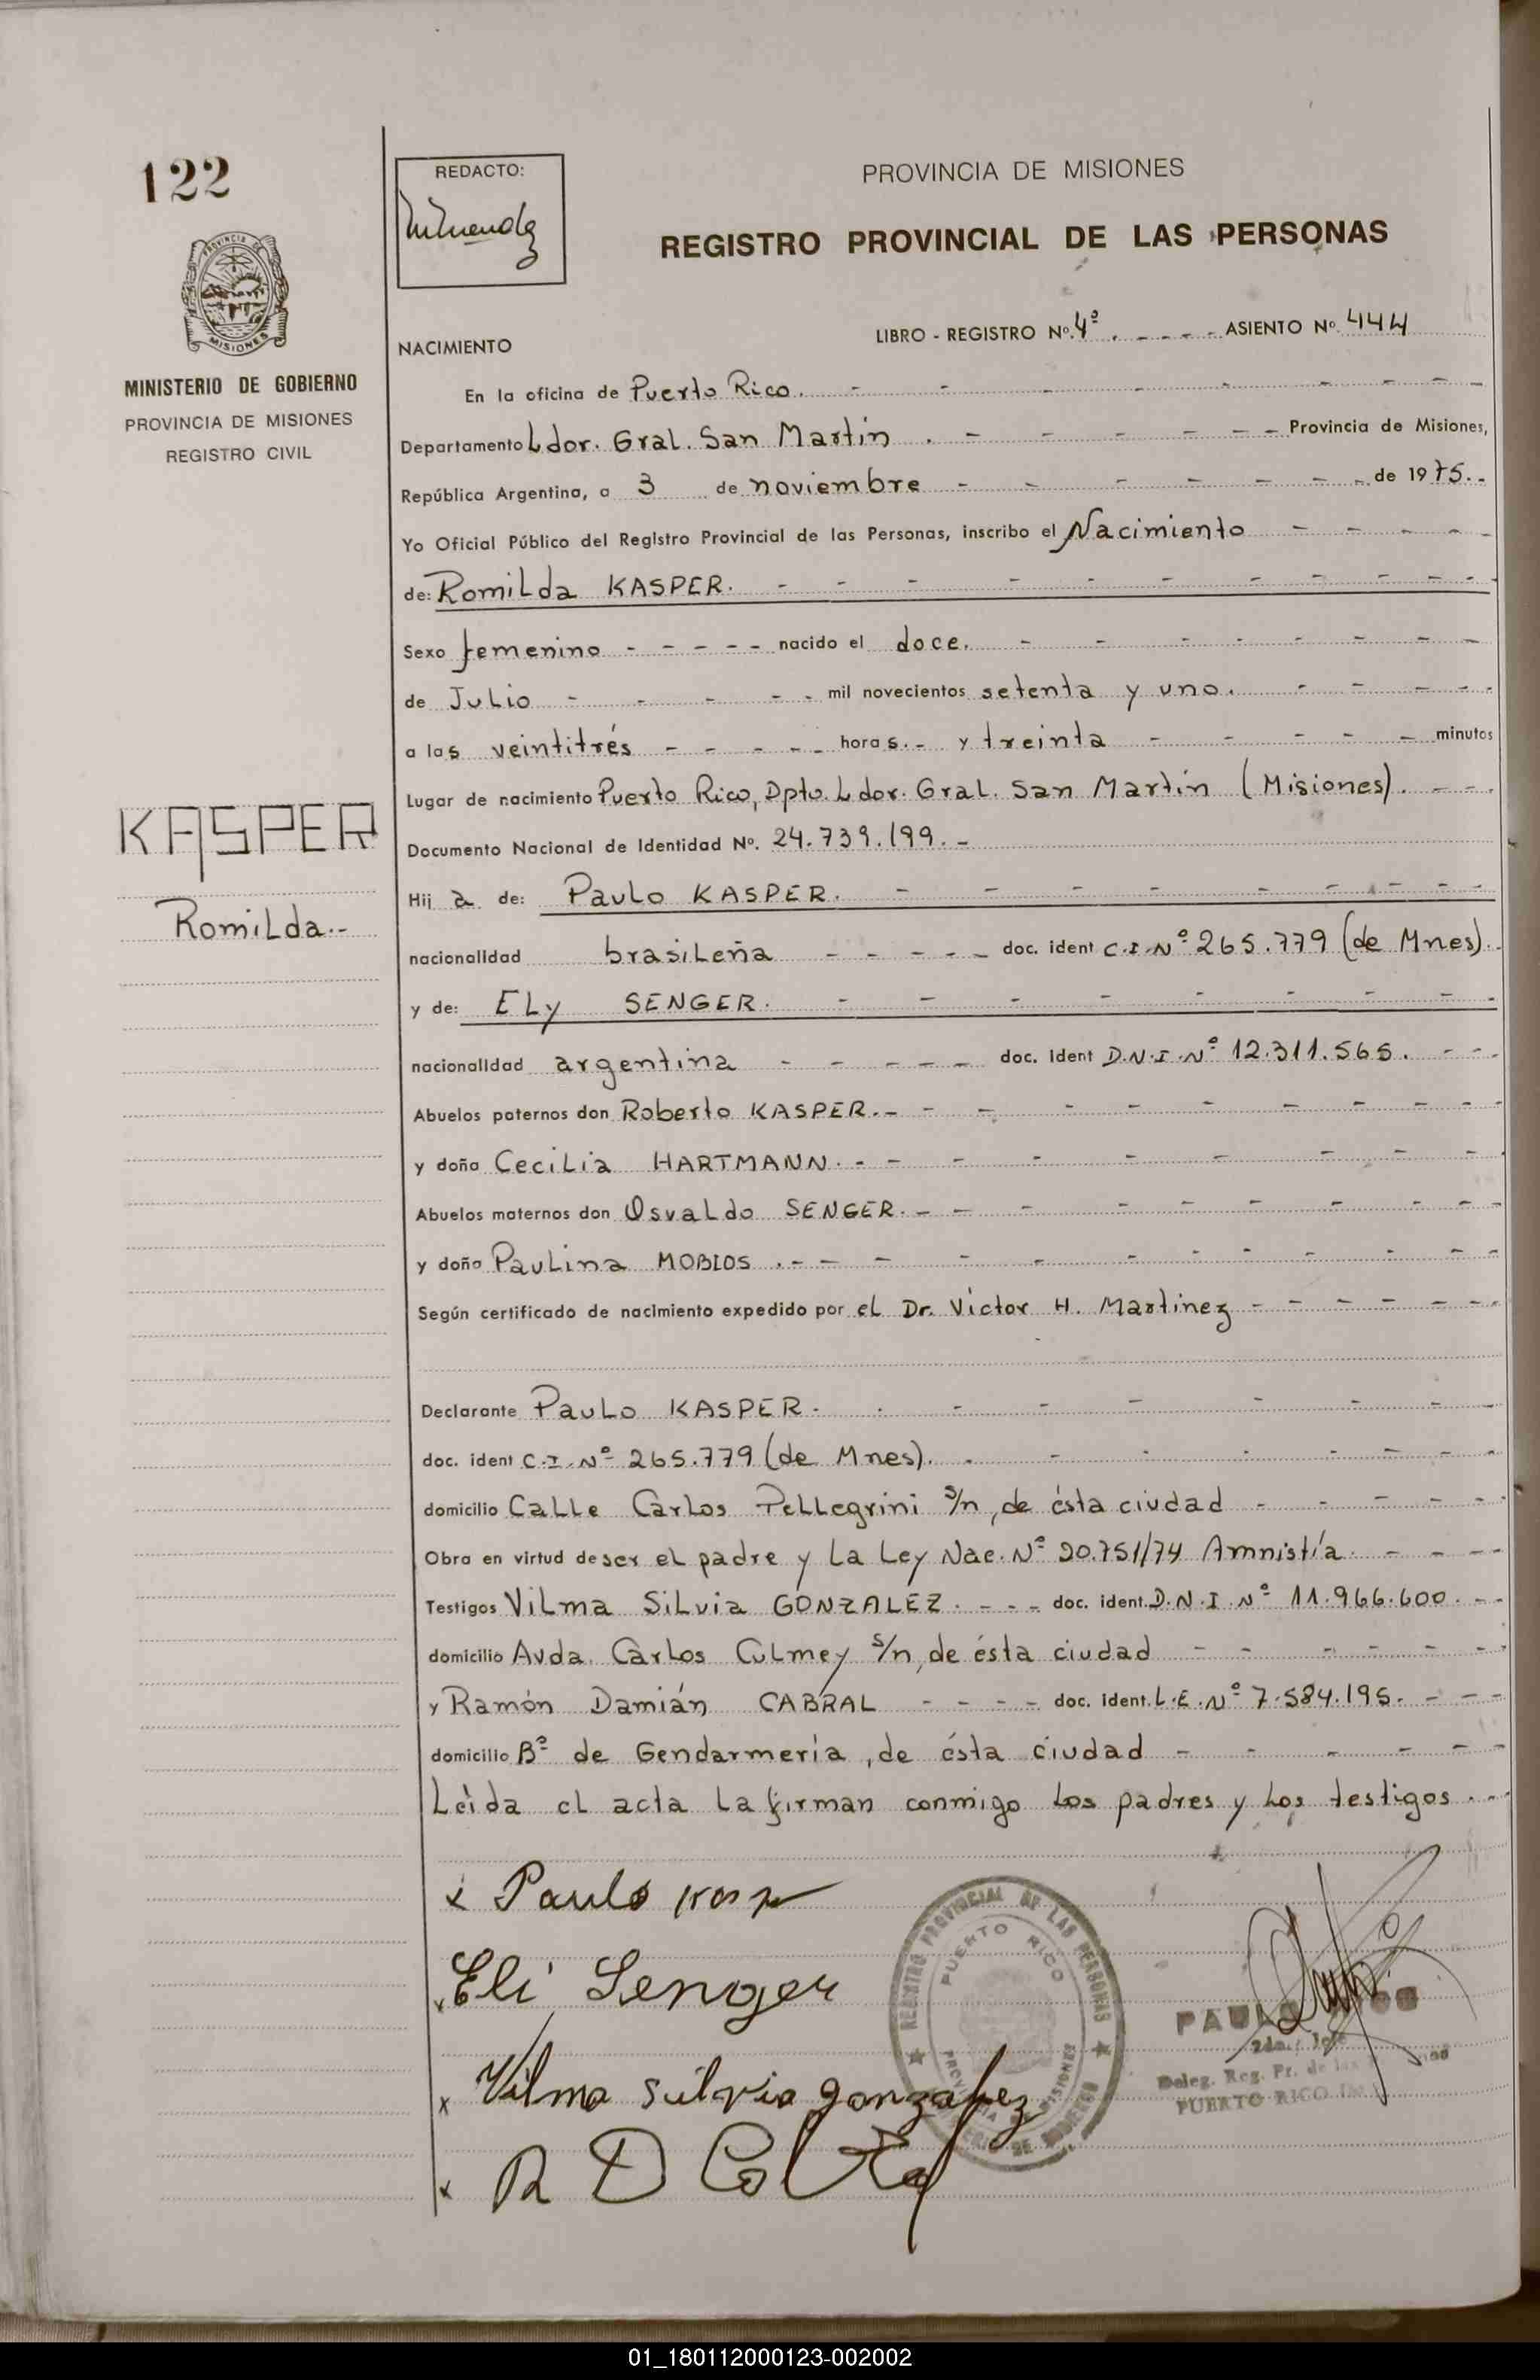 122
REDACTO:
PROVINCIA DE MISIONES
REGISTRO PROVINCIAL DE LAS PERSONAS
MISIONES
MINISTERIO DE GOBIERNO
PROVINCIA DE MISIONES
REGISTRO CIVIL
NACIMIENTO
LIBRO - REGISTRO Nº. 4º. - - - - ASIENTO Nº. 444
En la oficina de Puerto Rico.
Departamento Ldor. Gral. San Martín. - - - - - - Provincia de Misiones,
República Argentina, a 3 de noviembre - - - - - - de 1975.-
Yo Oficial Público del Registro Provincial de las Personas, inscribo el Nacimiento
de: Romilda KASPER.
Sexo femenino - - - - - nacido el doce.
de Julio - - - - - mil novecientos setenta y uno.
a las veintitrés - - - - - horas.- y treinta - - - - - minutos
Lugar de nacimiento Puerto Rico, Dpto. Ldor. Gral. San Martín (Misiones).
KASPER
Documento Nacional de Identidad Nº. 24.739.199.-
Hija de: Paulo KASPER.
Romilda.-
nacionalidad brasileña - - - - - doc. ident C.I.Nº 265.779 (de Mnes).
y de: Ely SENGER.
nacionalidad argentina - - - - - doc. ident D.N.I.Nº 12.311.565.
Abuelos paternos don Roberto KASPER.-
y doña Cecilia HARTMANN.-
Abuelos maternos don Osvaldo SENGER.-
y doña Paulina MOBIOS.-
Según certificado de nacimiento expedido por el Dr. Victor H. Martinez
Declarante Paulo KASPER.
doc. ident C.I.Nº 265.779 (de Mnes).
domicilio Calle Carlos Pellegrini s/n, de ésta ciudad
Obra en virtud de ser el padre y La Ley Nac. Nº 20.751/74 Amnistía.
Testigos Vilma Silvia GONZALEZ. - - - doc. ident. D.N.I.Nº 11.966.600.
domicilio Avda. Carlos Culmey s/n, de ésta ciudad
y Ramón Damián CABRAL - - - - doc. ident. L.E.Nº 7.584.195.
domicilio Bº de Gendarmería, de ésta ciudad
Leída el acta la firman conmigo los padres y los testigos.
x Paulo
x Eli Senger
x Vilma Silvia gonzalez
x R D
REGISTRO PROVINCIAL DE LAS PERSONAS
PUERTO RICO
MISIONES
PAULO
Deleg. Reg. Pr. de las
PUERTO RICO
01_180112000123-002002